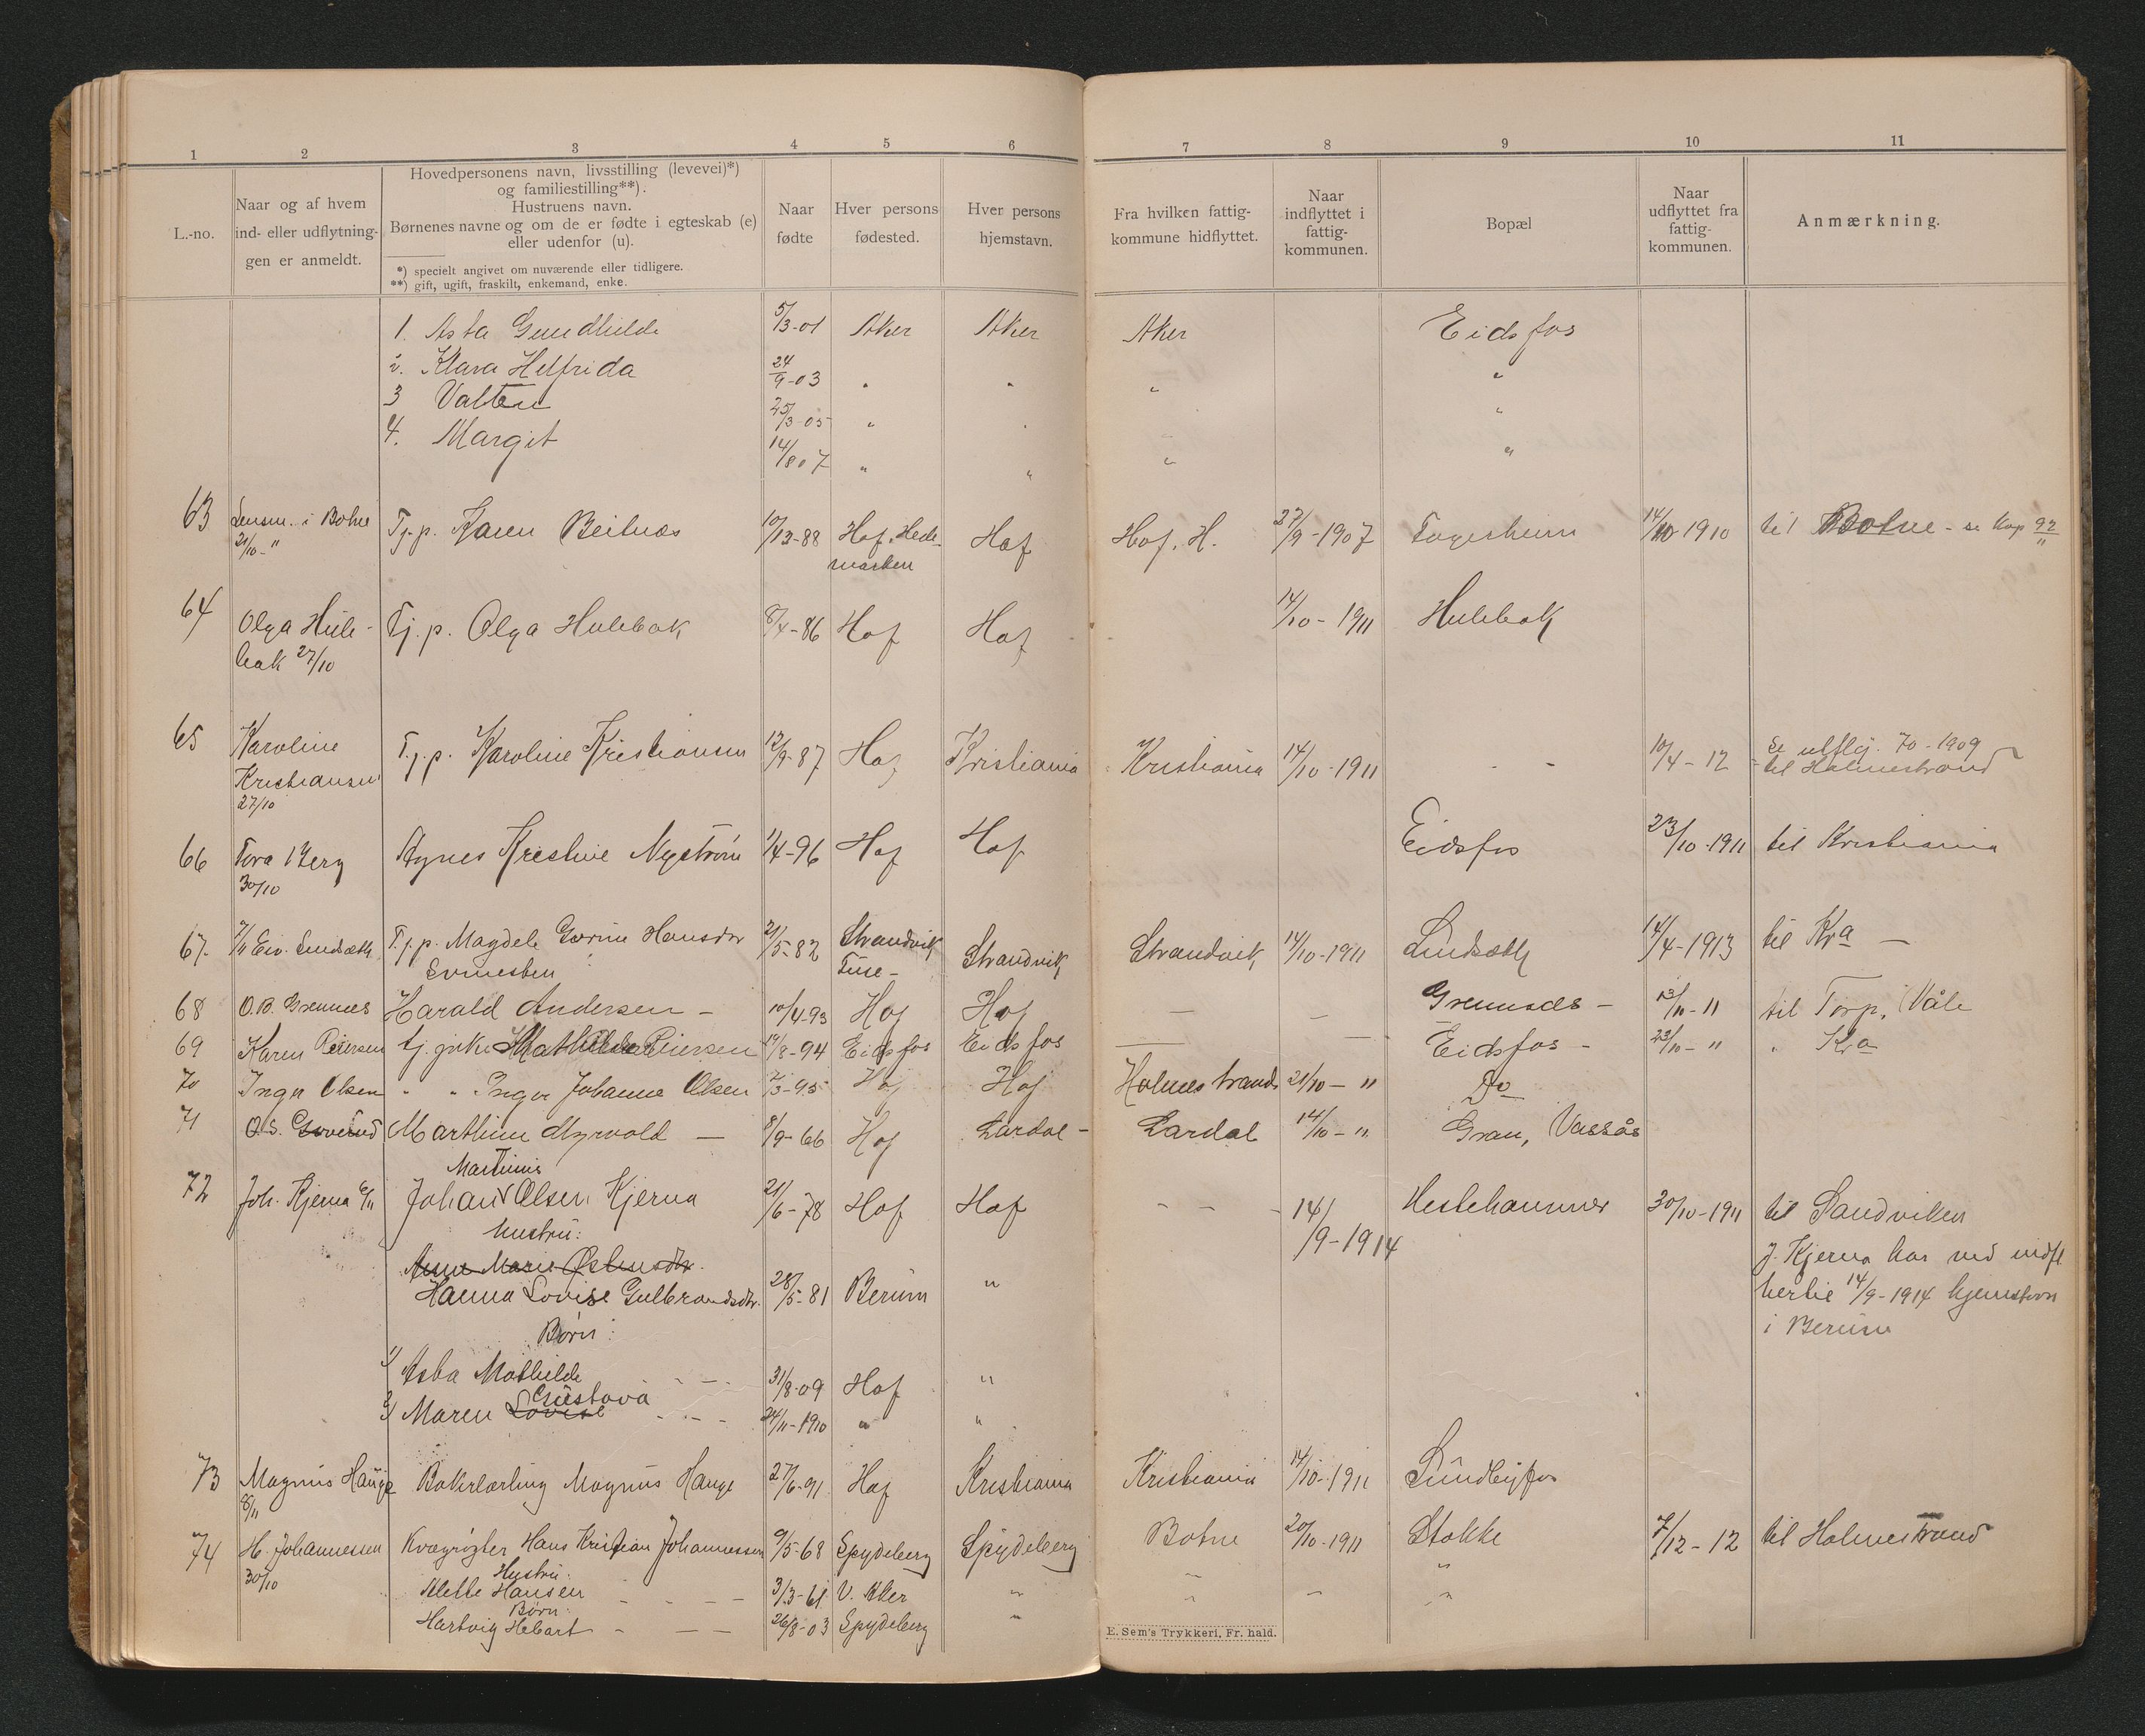 1 2 3 4 5 6 7 8 9 10 11
L.-no.
Naar og af hvem
ind- eller udflytnin-
gen er anmeldt.
Hovedpersonens navn, livsstilling (levevei)*)
og familiestilling**).
Hustruens navn.
Børnenes navne og om de er fødte i egteskab (e)
eller udenfor (u).
*) specielt angivet om nuværende eller tidligere.
**) gift, ugift, fraskilt, enkemand, enke.
Naar
fødte
Hver persons
fødested.
Hver persons
hjemstavn.
Fra hvilken fattig-
kommune hidflyttet.
Naar
indflyttet i
fattig-
kommunen.
Bopæl
Naar
udflyttet fra
fattig-
kommunen.
Anmærkning.
1. Asta Gundhilde 5/3-01 Aker Aker Aker Eidsfos
2. Klara Helfrida 24/9-03 " " " "
3 Valter 25/3-05 " " "
4. Margit 14/8 07 " " " "
63 Lensm. i Botne Tj.p. Karen Beitnæs 10/12-88 Hof, Hede- Hof Hof. H. 27/9-1907 14/10-1910 til Botne - se kop 92
21/10-" marken "
64 Olga Hule- Tj. p. Olga Hulebak 8/4-86 Hof Hof 14/10-1911 Hulebak
bak 27/10
65 Karoline Tj.p. Karoline Kristiansen 12/9-87 Hof Kristiania Kristiania 14/10-1911 - - 10/4-12 Se utflij. 70-1909
Kristiansen - til Holmestrand
27/10
66 Tora Berg Agnes Kristine Nystrøm 1/4-96 Hof Hof Eidsfos 23/10-1911 til Kristiania
30/10
67. 7/11 Eiv. Lindsæth Tj.p. Magdele Gurine Hansdtr 21/5-82 Strandvik Strandvik Strandvik 14/10-1911 Lindsæth 14/4-1913 til Kra -
68 O.B. Grennes Harald Andersen - 10/4-93 Hof Hof - - - 13/11-11 til Torp, Våle
69 Karen Peiersen tj.pike Mathilde Peiersen 19/8-94 Eidsfos Eidsfos - - Eidsfos - 23/10-" " Kra
70 Inga Olsen " " Inga Johanne Olsen 2/3-95 Hof Hof Holmestrand 21/10-" Do
71 O.S. Marthin Myrvold - 8/9-66 Hof Lardal - Lardal 14/10-" Gran, Vassås
Martinius
72 Joh. Kjerna 6/11 Johan Olsen Kjerna 21/6-78 Hof Hof - - - 14/9-1914 Hestehammer 30/10-1911 til Sandviken
Hustru: J. Kjerna har ved indfl
Anne Marie Østensdtr. hertil 14/9-1914 hjemstavn
Hanna Lovise Gulbrandsdtr. 28/5-81 Berum " i Berum
Børn:
1/ Asta Mathilde - - - 31/8-09 Hof "
Gustava
2/ Maren Lovise - - - 24/11-1910 " "
73 Magnus Hauge Bakerlærling Magnus Hauge 27/6-91 Hof Kristiania Kristiania 14/10-1911 Sundbyfos
8/11
74 H. Johannessen Kvægrøgter Hans Kristian Johannessen 9/5-68 Spydeberg Spydeberg Botne 20/10-1911 Stokke 7/12-12 til Holmestrand
30/10 Hustru: "
Mette Hansen - - - - 3/3-61 V. Aker " " - "
Børn:
Hartvig Hebart - - - 26/8-03 Spydeberg "
E. Sem's Trykkeri, Fr. hald.